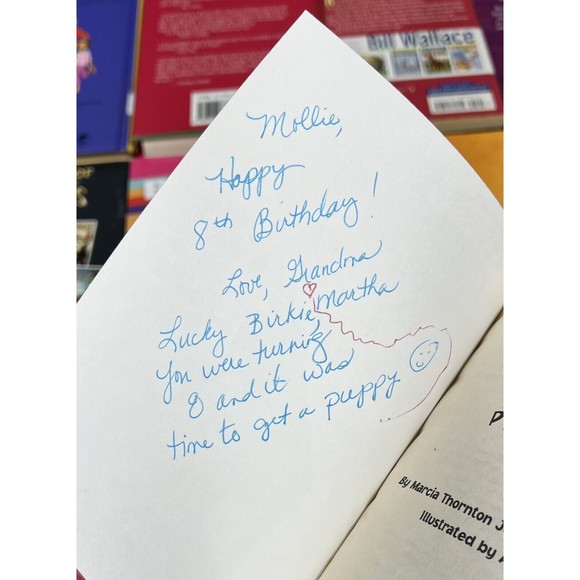 Bill Wallace
Mollie,
Happy
8th Birthday!
Love, Grandma
Martha
Lucky Birkie,
You were turning
8 and it was
time to get a puppy
By Marcia Thornton J
Illustrated by A